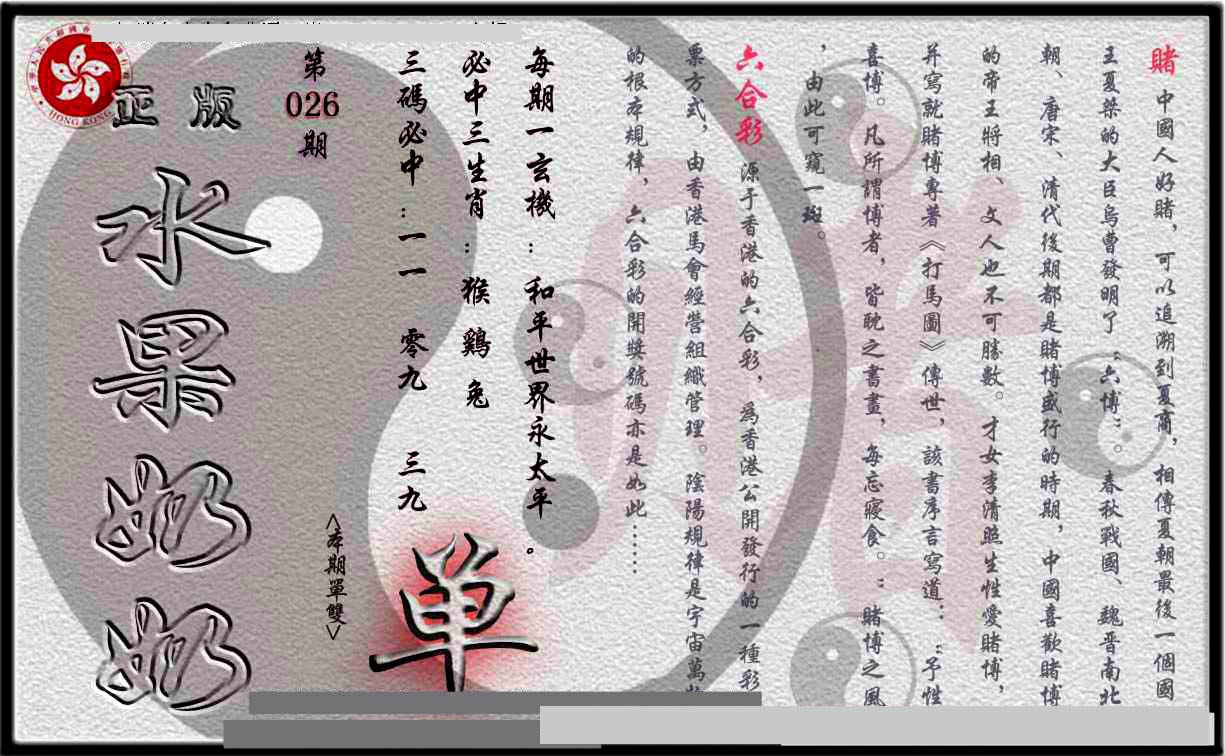 賭 中國人好賭，可以追溯到夏商，相傳夏朝最後一個國
王夏桀的大臣烏曹發明了“六博”。春秋戰國、魏晋南北
朝、唐宋、清代後期都是賭博盛行的時期，中國喜歡賭博
的帝王將相、文人也不可勝數。才女李清照生性愛賭博，
并寫就賭博專著《打馬圖》傳世，該書序言寫道：“予性
喜博。凡所謂博者，皆耽之晝，每忘寢食。”賭博之風
，由此可窺一斑。
六合彩 源于香港的六合彩，為香港公開發行的一種彩
票方式，由香港馬會經營組織管理。陰陽規律是宇宙萬
的根本規律，六合彩的開獎號碼亦是如此……
每期一玄機：和平世界永太平。
必中三生肖：猴 鷄 兔
三碼必中：一一 零九 三九
第
026
期
<本期單雙>
单
正版
水果奶奶
HONG KONG